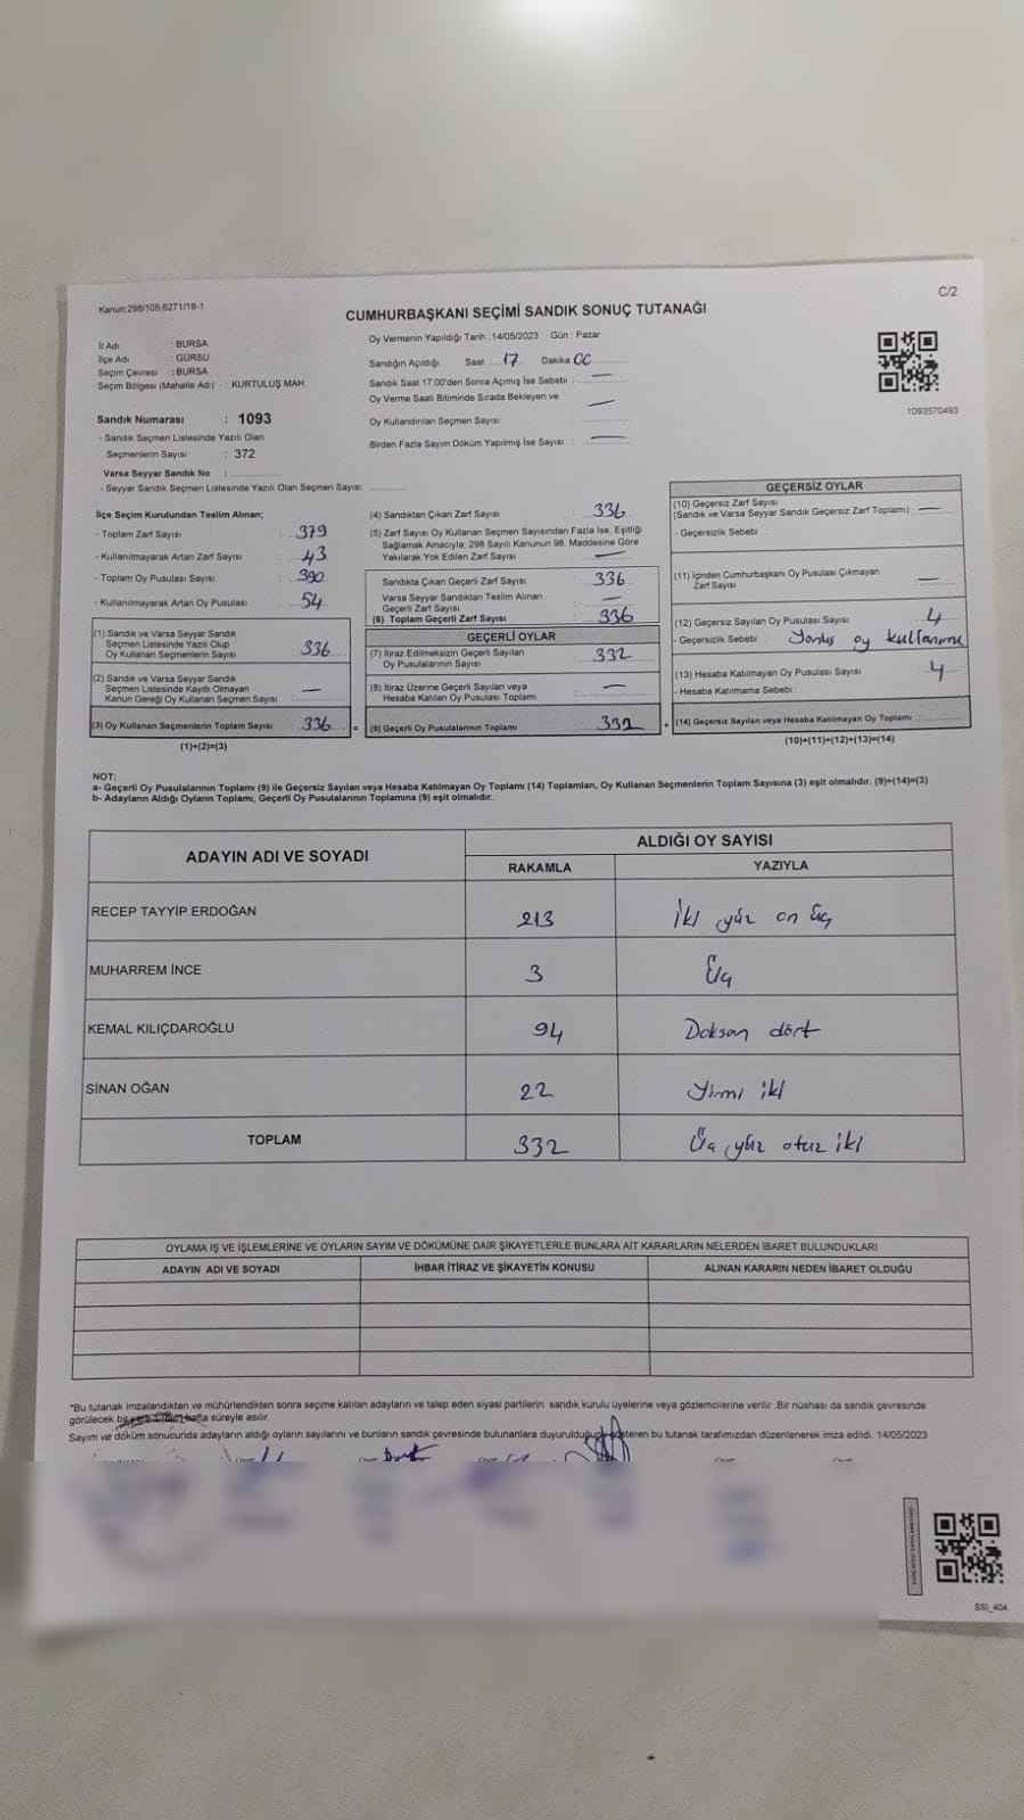 Kanun:298/105-6271/18-1
C/2
CUMHURBAŞKANI SEÇİMİ SANDIK SONUÇ TUTANAĞI
İl Adı : BURSA
İlçe Adı : GÜRSU
Seçim Çevresi : BURSA
Seçim Bölgesi (Mahalle Adı) : KURTULUŞ MAH.
Oy Vermenin Yapıldığı Tarih : 14/05/2023 Gün : Pazar
Sandığın Açıldığı Saat 17 Dakika 00
Sandık Saat 17.00'den Sonra Açılmış İse Sebebi : —
Oy Verme Saati Bitiminde Sırada Bekleyen ve
Oy Kullandırılan Seçmen Sayısı —
Birden Fazla Sayım Döküm Yapılmış İse Sayısı : —
1093570493
Sandık Numarası : 1093
- Sandık Seçmen Listesinde Yazılı Olan
Seçmenlerin Sayısı : 372
Varsa Seyyar Sandık No :
- Seyyar Sandık Seçmen Listesinde Yazılı Olan Seçmen Sayısı
İlçe Seçim Kurulundan Teslim Alınan;
- Toplam Zarf Sayısı : 379
- Kullanılmayarak Artan Zarf Sayısı : 43
- Toplam Oy Pusulası Sayısı : 390
- Kullanılmayarak Artan Oy Pusulası : 54
(1) Sandık ve Varsa Seyyar Sandık
Seçmen Listesinde Yazılı Olup
Oy Kullanan Seçmenlerin Sayısı 336
(2) Sandık ve Varsa Seyyar Sandık
Seçmen Listesinde Kayıtlı Olmayan
Kanun Gereği Oy Kullanan Seçmen Sayısı —
(3) Oy Kullanan Seçmenlerin Toplam Sayısı 336 =
(1)+(2)=(3)
(4) Sandıktan Çıkan Zarf Sayısı : 336
(5) Zarf Sayısı Oy Kullanan Seçmen Sayısından Fazla İse, Eşitliği
Sağlamak Amacıyla; 298 Sayılı Kanunun 98. Maddesine Göre
Yakılarak Yok Edilen Zarf Sayısı —
Sandıkta Çıkan Geçerli Zarf Sayısı 336
Varsa Seyyar Sandıktan Teslim Alınan
Geçerli Zarf Sayısı —
(6) Toplam Geçerli Zarf Sayısı 336
GEÇERLİ OYLAR
(7) İtiraz Edilmeksizin Geçerli Sayılan
Oy Pusulalarının Sayısı 332
(8) İtiraz Üzerine Geçerli Sayılan veya
Hesaba Katılan Oy Pusulası Toplamı —
(9) Geçerli Oy Pusulalarının Toplamı 332 +
GEÇERSİZ OYLAR
(10) Geçersiz Zarf Sayısı
(Sandık ve Varsa Seyyar Sandık Geçersiz Zarf Toplamı) : —
- Geçersizlik Sebebi :
(11) İçinden Cumhurbaşkanı Oy Pusulası Çıkmayan
Zarf Sayısı —
(12) Geçersiz Sayılan Oy Pusulası Sayısı 4
- Geçersizlik Sebebi Yanlış oy kullanma
(13) Hesaba Katılmayan Oy Pusulası Sayısı 4
- Hesaba Katılmama Sebebi :
(14) Geçersiz Sayılan veya Hesaba Katılmayan Oy Toplamı
(10)+(11)+(12)+(13)=(14)
NOT:
a- Geçerli Oy Pusulalarının Toplamı (9) ile Geçersiz Sayılan veya Hesaba Katılmayan Oy Toplamı (14) Toplamları, Oy Kullanan Seçmenlerin Toplam Sayısına (3) eşit olmalıdır. (9)+(14)=(3)
b- Adayların Aldığı Oyların Toplamı, Geçerli Oy Pusulalarının Toplamına (9) eşit olmalıdır.
ADAYIN ADI VE SOYADI
ALDIĞI OY SAYISI
RAKAMLA YAZIYLA
RECEP TAYYİP ERDOĞAN 213 İki yüz on üç
MUHARREM İNCE 3 Üç
KEMAL KILIÇDAROĞLU 94 Doksan dört
SİNAN OĞAN 22 Yirmi iki
TOPLAM 332 Üç yüz otuz iki
OYLAMA İŞ VE İŞLEMLERİNE VE OYLARIN SAYIM VE DÖKÜMÜNE DAİR ŞİKAYETLERLE BUNLARA AİT KARARLARIN NELERDEN İBARET BULUNDUKLARI
ADAYIN ADI VE SOYADI İHBAR İTİRAZ VE ŞİKAYETİN KONUSU ALINAN KARARIN NEDEN İBARET OLDUĞU
*Bu tutanak imzalandıktan ve mühürlendikten sonra seçime katılan adayların ve talep eden siyasi partilerin sandık kurulu üyelerine veya gözlemcilerine verilir. Bir nüshası da sandık çevresinde
görülecek bir hafta süreyle asılır.
Sayım ve döküm sonucunda adayların aldığı oyların sayılarını ve bunların sandık çevresinde bulunanlara duyurulduğunu gösteren bu tutanak tarafımızdan düzenlenerek imza edildi. 14/05/2023
SSI_404